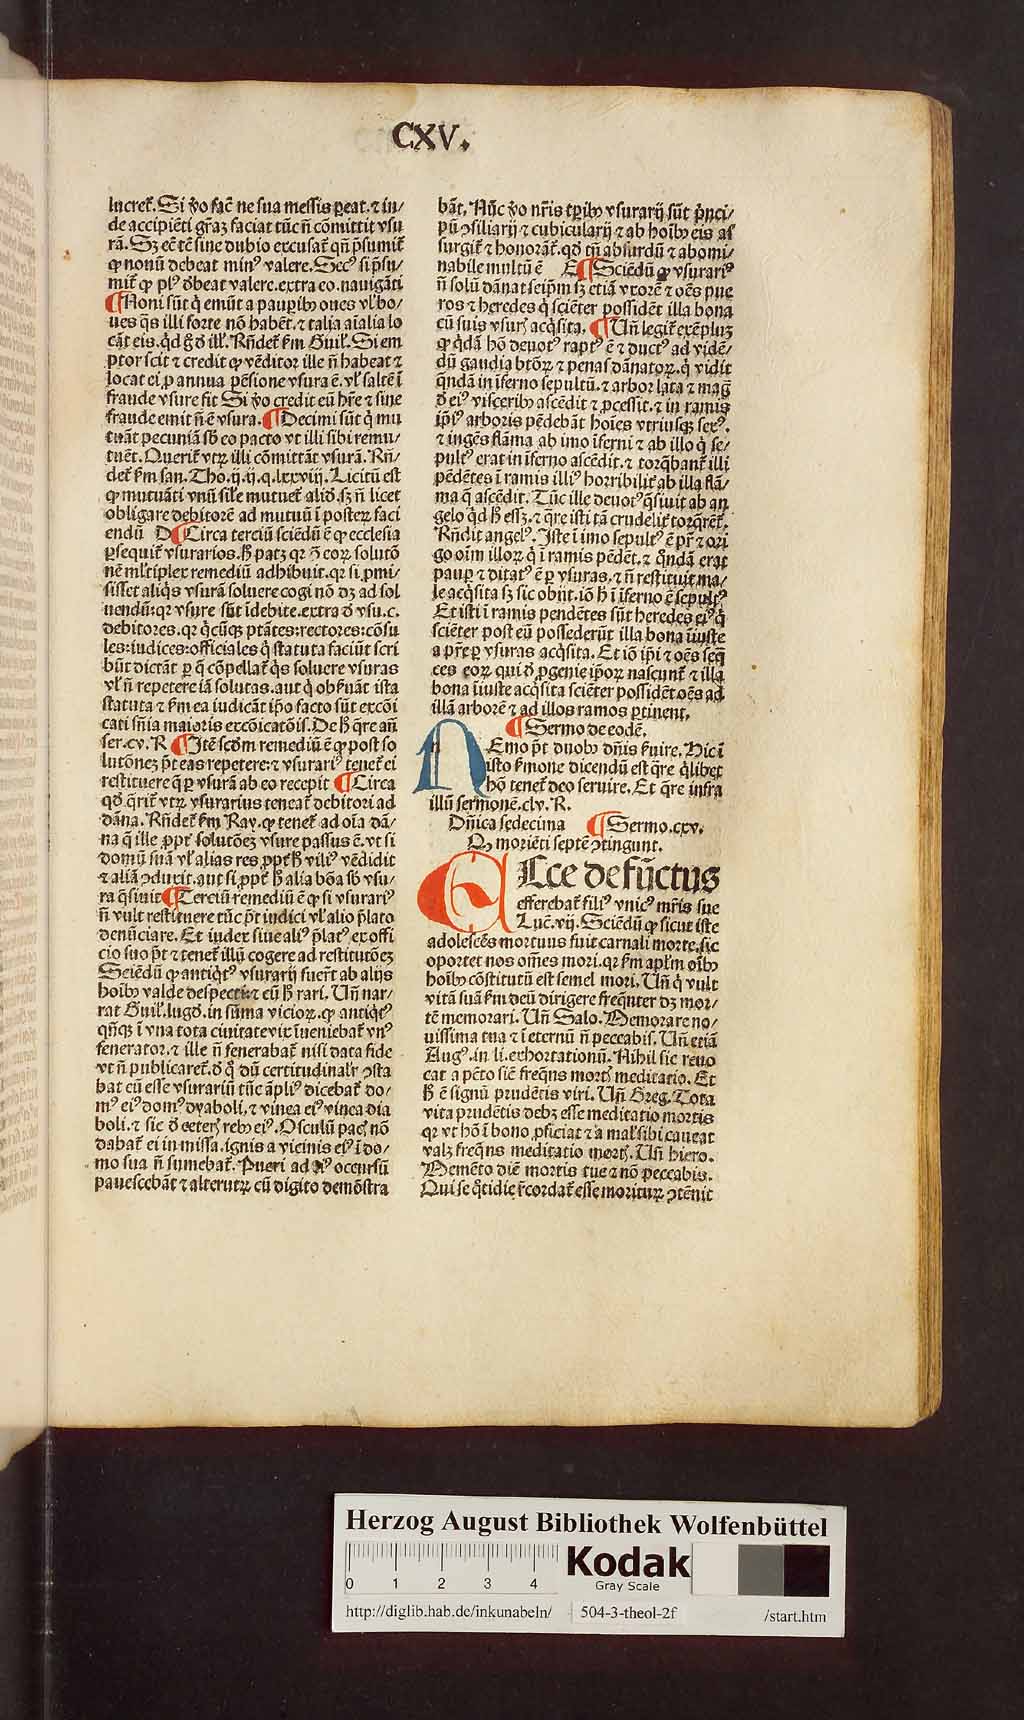 CXV.
lucret᷑. Si ꝟo fac̄ ne sua messis ꝑeat. ⁊ in/
de accipiēti graꝫ faciat tūc n̄ cōmittit vsu
rā. Sꝫ ec̄ tn̄ sine dubio excusat᷑ qn̄ p̄sumit᷑
ꝙ nonū debeat minꝰ valere. Secꝰ si p̄su/
mit᷑ ꝙ plꝰ d̄beat valere. extra eo. nauigāti
¶ Noni sūt q̇ emūt a pauꝑibꝰ oues vl̓ bo/
ues q̄s illi forte nō habēt. ⁊ talia aīalia lo
cāt eis. qd̓ g̊ d̓ ill̓. Rn̄det᷑ ẜm Guil̓. Si em
ptor scit ⁊ credit ꝙ vēditor ille n̄ habeat ⁊
locat ei ꝓ annua pēsione vsura ē. vl̓ saltē ī
fraude vsure fit Si ꝟo credit eū hr̄e ⁊ sine
fraude emit n̄ ē vsura. ¶ Decimi sūt q̇ mu
tuāt pecuniā sb̓ eo pacto vt illi sibi remu/
tuēt. Querit᷑ vtꝝ illi cōmittāt vsurā. Rn̄/
det᷑ ẜm san. Tho. ij. ij. q. lxxviij. Licitū est
ꝙ mutuāti vnū sil̓e mutuet᷑ aliq̊d. sꝫ n̄ licet
obligare debitorē ad mutuū ī posteꝝ faci
endū D ¶ Circa terciū sciēdū ē ꝙ ecclesia
ꝑsequit᷑ vsurarios. hͦ patꝫ qꝛ ꝯ̄ eoꝝ solutō
nē ml̓tiplex remediū adhibuit. qꝛ si ꝓmi/
sisset aliq̄s vsurā soluere cogi nō dꝫ ad sol
uendū: qꝛ vsure sūt īdebite. extra d̓ vsu. c.
debitores. qꝛ q̇cūqꝫ ptātes: rectores: cōsu
les: iudices: officiales q̇ statuta faciūt scri
būt dictāt ꝑ q̄ cōpellat᷑ q̄s soluere vsuras
vl̓ n̄ repetere iā solutas. aut q̇ obẜuāt ista
statuta ⁊ ẜm ea iudicāt ip̄o facto sūt excōi
cati sn̄ia maioris excōicatōis. De hͦ q̄re an̄
ser. cv. R ¶ Itē scd̓m remediū ē ꝙ post so
lutōneꝫ p̄t eas repetere: ⁊ vsurariꝰ tenet᷑ ei
restituere qͦꝑ vsurā ab eo recepit ¶ Circa
qd̓ q̄rit᷑ vtꝝ vsurarius teneat᷑ debitori ad
dāna. Rn̄det᷑ ẜm Ray. ꝙ tenet᷑ ad oīa dā/
na q̄ ille ꝓpt̓ solutōeꝫ vsure passus ē. vt si
domū suā vl̓ alias res ꝓpt̓ hͦ viliꝰ vēdidit
⁊ aliā ꝯduxit. aut si ꝓpt̓ hͦ alia bōa sb̓ vsu/
ra q̄siuit ¶ Terciū remediū ē ꝙ si vsurariꝰ
n̄ vult restituere tūc p̄t iudici vl̓ alio p̄lato
denūciare. Et iudex siue aliꝰ p̄latꝰ ex offi
cio suo p̄t ⁊ tenet᷑ illū cogere ad restitutōeꝫ
Sciēdū ꝙ antiq̇tꝰ vsurarij fuer̄t ab alijs
hoībꝰ valde despecti: ⁊ cū hͦ rari. Un̄ nar/
rat Guil̓. lugd̓. in sūma vicioꝝ. ꝙ antiq̇tꝰ
qn̄qꝫ ī vna tota ciuitate vix īueniebat᷑ vnꝰ
fenerator. ⁊ ille n̄ fenerabat᷑ nisi data fide
vt n̄ publicaret᷑. d̓ qͦ dū certitudinalr̓ ꝯsta
bat cū esse vsurariū tūc āpliꝰ dicebat᷑ do/
mꝰ eiꝰ domꝰ dyaboli. ⁊ vinea eiꝰ vinea dia
boli. ⁊ sic d̓ ceteꝭ rebꝰ eiꝰ. Osculū pacꝭ nō
dabat᷑ ei in missa. ignis a vicinis eiꝰ ī do/
mo sua n̄ sumebat᷑. Pueri ad eiꝰ occursū
pauescebāt ⁊ alterutꝝ cū digito demōstra
bāt. Nūc ꝟo nr̄is tꝑibꝰ vsurarij sūt p̄nci/
pū ꝯsiliarij ⁊ cubicularij ⁊ ab hoībꝰ eis as
surgit᷑ ⁊ honorāt᷑. qd̓ tn̄ absurdū ⁊ abomi/
nabile multū ē E ¶ Sciēdū ꝙ vsurariꝰ
n̄ solū dānat seip̄m sꝫ etiā vxorē ⁊ oēs pue
ros ⁊ heredes q̇ sciēter possidēt illa bona
cū suis vsurꝭ acq̇sita. ¶ Un̄ legit᷑ exēpluꝫ
ꝙ q̇dā hō deuotꝰ raptꝰ ē ⁊ ductꝰ ad vidē/
dū gaudia btōꝝ ⁊ penas dānatoꝝ. q̇ vidit
quēdā in īferno sepultū. ⁊ arbor lata ⁊ mag̓
d̓ eiꝰ visceribꝰ ascēdit ⁊ ꝓcessit. ⁊ in ramis
ip̄iꝰ arboris pēdebāt hoīes vtriusqꝫ sexꝰ.
⁊ ingēs flāma ab imo īferni ⁊ ab illo q̇ se/
pultꝰ erat in īferno ascēdit. ⁊ torq̄bant᷑ illi
pēdētes ī ramis illiꝰ horribilit᷑ ab illa flā/
ma q̄ ascēdit. Tūc ille deuotꝰ q̄siuit ab an
gelo q̇d hͦ essꝫ. ⁊ q̄re isti tā crudelit᷑ torq̄rēt᷑.
Rn̄dit angelꝰ. Iste ī imo sepultꝰ ē pr̄ ⁊ ori
go oīm illoꝝ q̇ ī ramis pēdēt. ⁊ qͦndā erat
pauꝑ ⁊ ditatꝰ ē ꝑ vsuras. ⁊ n̄ restituit ma/
le acq̇sita sꝫ sic obijt. iō hͦ ī īferno ē sepultꝰ
Et isti ī ramis pendētes sūt heredes eiꝰ q̇
sciēter post eū possederūt illa bona īiuste
a pr̄e ꝑ vsuras acq̇sita. Et iō ip̄i ⁊ oēs seq̄
ces eoꝝ qui d̓ ꝓgenie ip̄oꝝ nascunt᷑ ⁊ illa
bona īiuste acq̇sita sciēter possidēt oēs ad
illā arborē ⁊ ad illos ramos ꝑtinent.
¶ Sermo de eodē.
NEmo p̄t duobꝰ dn̄is ẜuire. Hic ī
isto ẜmone dicendū est q̄re q̇libet
hō tenet᷑ deo seruire. Et q̄re infra
illū sermonē. clv. R.
Dn̄ica sedecima ¶ Sermo. cxv.
Qͦ morieti septē ꝯtingunt.
ECce defūctus
efferebat᷑ filiꝰ vnicꝰ mr̄is sue
Luc̄. vij. Sciēdū ꝙ sicut iste
adolescēs mortuus fuit carnali morte. sic
oportet nos om̄es mori. qꝛ ẜm apl̓m oībꝰ
hoībꝰ cōstitutū est semel mori. Un̄ q̇ vult
vitā suā ẜm deū dirigere freq̄nter dꝫ mor/
tē memorari. Un̄ Salo. Memorare no/
uissima tua ⁊ ī eternū n̄ peccabis. Un̄ etiā
Augꝰ. in li. exhortationū. Nihil sic reuo
cat a pc̄to sic̄ freq̄ns mortꝭ meditatio. Et
hͦ ē signū prudētis viri. Un̄ Greg. Tota
vita prudētis debꝫ esse meditatio mortis
qꝛ vt hō ī bono ꝓficiat ⁊ a mal̓ sibi caueat
valꝫ freq̄ns meditatio mortꝭ. Un̄ hiero.
Memēto diē mortis tue ⁊ nō peccabis.
Qui se q̄tidie r̓cordat᷑ esse morituꝝ ꝯtēnit
Herzog August Bibliothek Wolfenbüttel
0 1 2 3 4
Kodak
Gray Scale
http://diglib.hab.de/inkunabeln/ 504-3-theol-2f /start.htm